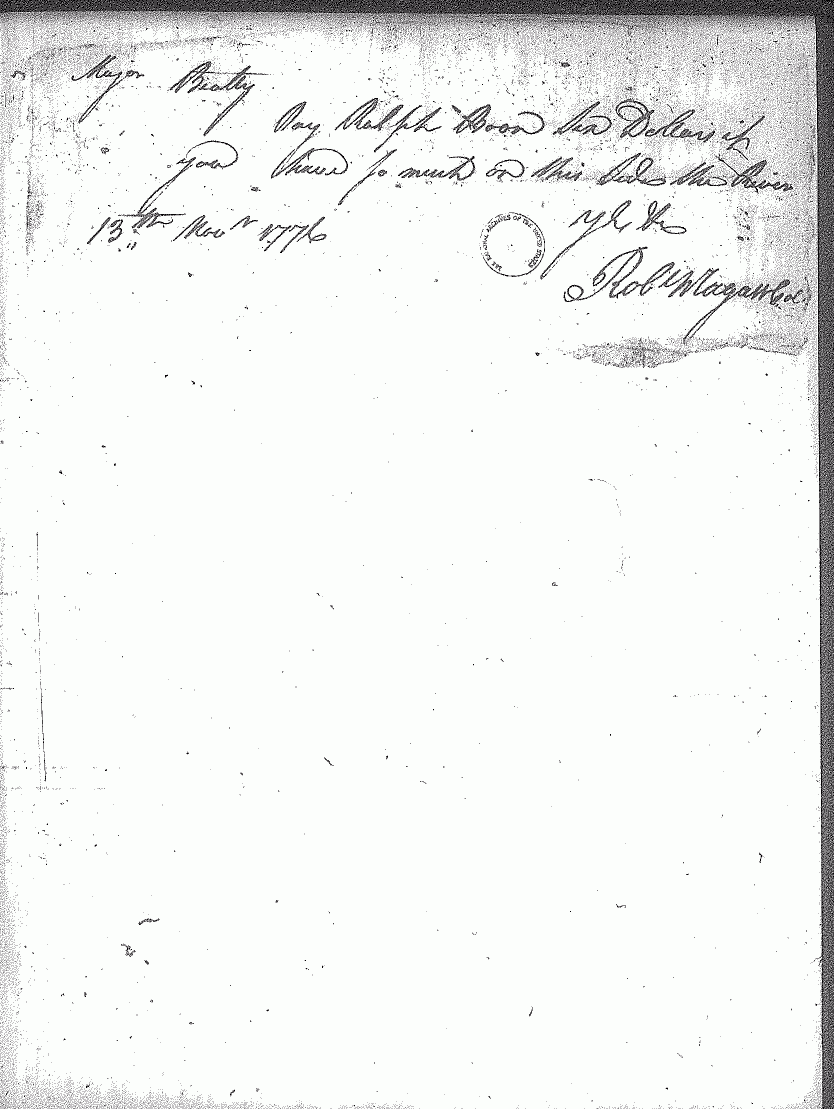 Major Beatty
Pay Ralph Boon Six Dollars if
you have so much on this Side the River
13th Novr 1776
THE NATIONAL ARCHIVES OF THE UNITED STATES
Robt Magaw Col